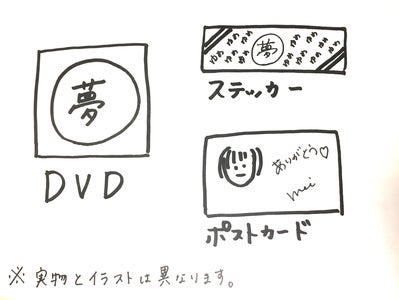 夢
DVD
ゆめ ゆめ ゆめ ゆめ ゆめ ゆめ 夢 ゆめ ゆめ ゆめ ゆめ ゆめ ゆめ
ステッカー
ありがとう♡
mei
ポストカード
※実物とイラストは異なります。